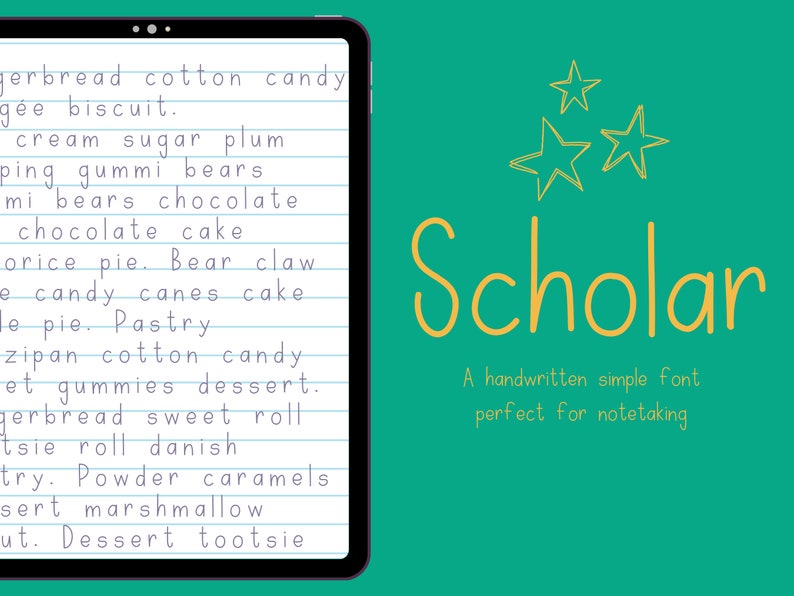 gerbread cotton candy
gée biscuit.
cream sugar plum
ping gummi bears
mi bears chocolate
chocolate cake
orice pie. Bear claw
e candy canes cake
le pie. Pastry
zipan cotton candy
et gummies dessert.
gerbread sweet roll
tsie roll danish
try. Powder caramels
sert marshmallow
ut. Dessert tootsie
Scholar
A handwritten simple font
perfect for notetaking